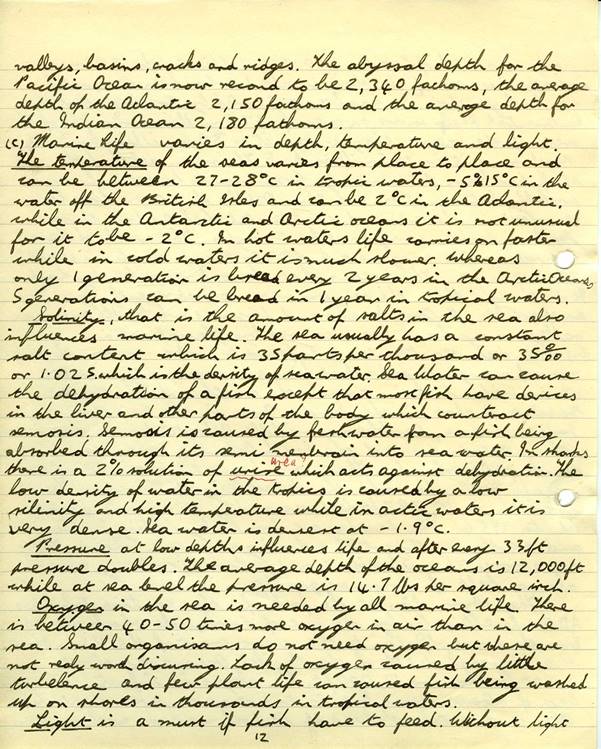 valleys, basins, cracks and ridges. The abyssal depth for the
Pacific Ocean is now record to be 2,340 fathoms, the average
depth of the Atlantic 2,150 fathoms and the average depth for
the Indian Ocean 2,180 fathoms.
(c) Marine life varies in depth, temperature and light.
The temperature of the seas varies from place to place and
can be between 27-28°C in tropic waters, -5 15°C in the
water off the British Isles and can be 2°C in the Atlantic.
while in the Antarctic and Arctic oceans it is not unusual
for it to be -2°C. In hot waters life carries on faster
while in cold waters it is much slower. whereas
only 1 generation is bread every 2 years in the Arctic Oceans
5 generations can be bread in 1 year in tropical waters.
Solinity, that is the amount of salts in the sea also
influences marine life. The sea usually has a constant
salt content which is 35 parts per thousand or 35‰
or 1.025. which is the density of sea water. Sea Water can cause
the dehydration of a fish except that most fish have devices
in the liver and other parts of the body which counteract
semosis. Semosis is caused by fresh water from a fish being
absorbed through its semi membrain into sea water. In sharks
urea
there is a 2% solution of urine which acts against dehydration. The
low density of water in the tropics is caused by a low
silinity and high temperature while in actic waters it is
very dense. Sea water is densest at -1.9°C.
Pressure at low depths influences life and after every 33ft
pressure doubles. The average depth of the oceans is 12,000ft
while at sea level the pressure is 14.7 lbs per square inch.
Oxygen in the sea is needed by all marine life. There
is between 40-50 times more oxygen in air than in the
sea. Small organisams do not need oxygen but these are
not realy worth discusing. Lack of oxygen caused by little
turbelence and few plant life can caused fish being washed
up on shores in thousands in tropical waters.
Light is a must if fish have to feed. Without light
12